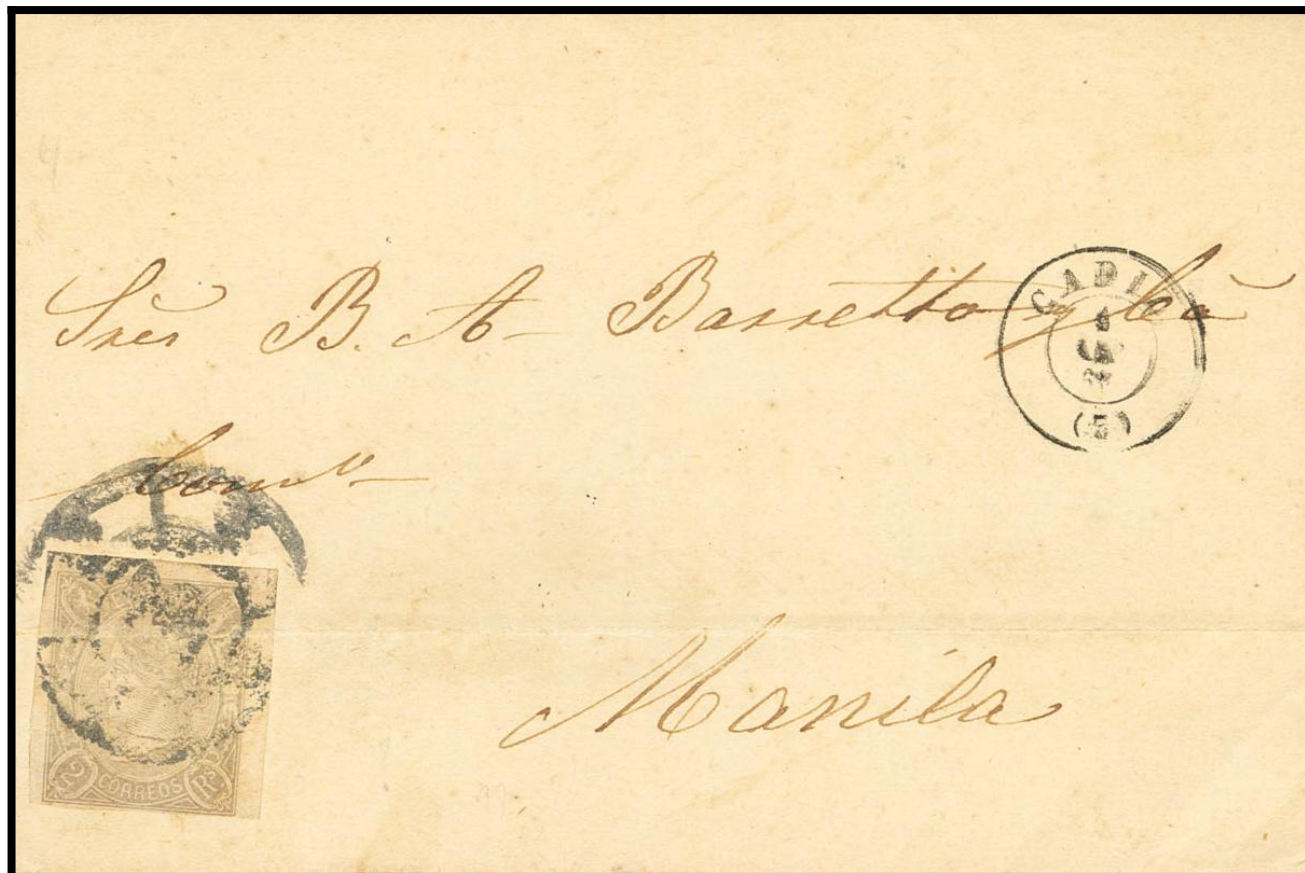 Sres B. A. Barretto y Ca
CADIZ
(5)
Manila
2 CORREOS Rs